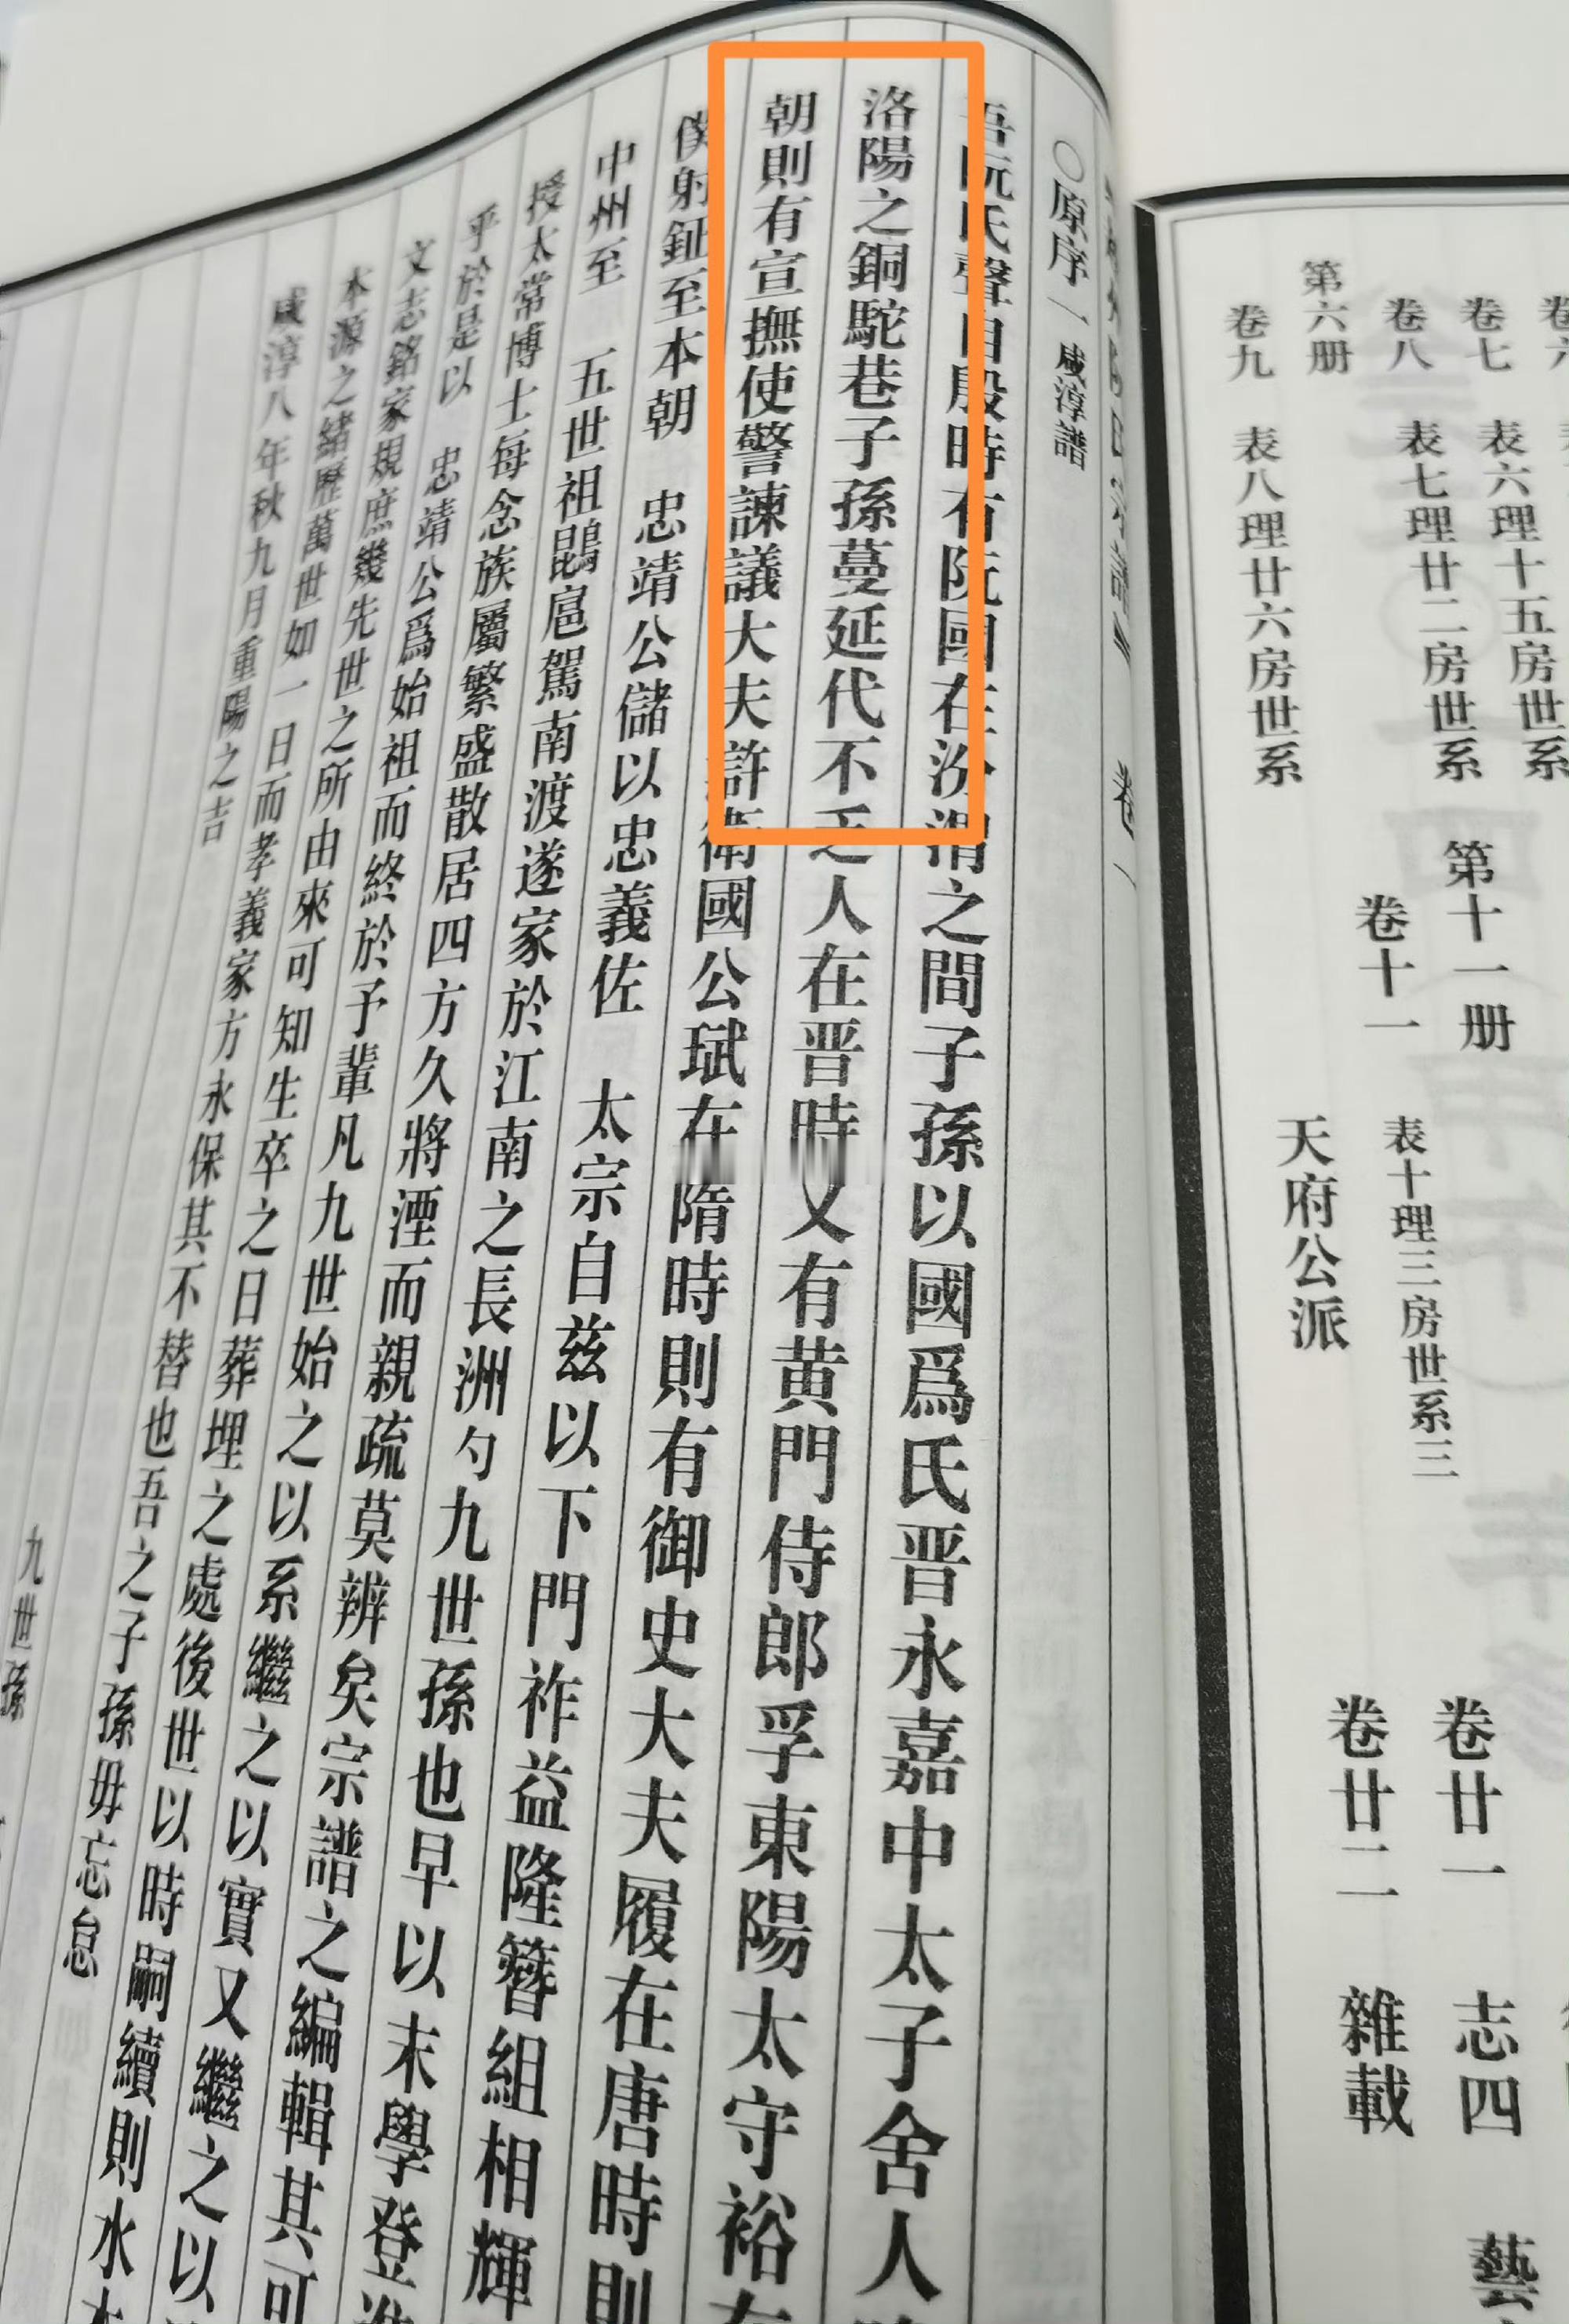 卷七　表六理十五房世系
卷八　表七理廿二房世系
第六册
卷九　表八理廿六房世系
第十一册
卷十一
表十理三房世系三
天府公派
卷廿一　志四　藝
卷廿二　雜載
卷一
○原序一　咸淳譜
吾阮氏聲自殷時有阮國在汾渭之間子孫以國爲氏晋永嘉中太子舍人
洛陽之銅駝巷子孫蔓延代不乏人在晋時又有黄門侍郎孚東陽太守裕
朝則有宣撫使警諫議大夫許衛國公珷在隋時則有御史大夫履在唐時則
僕射鉦至本朝　忠靖公儲以忠義佐　太宗自茲以下門祚益隆簪組相輝
中州至　五世祖鵾扈駕南渡遂家於江南之長洲勺九世孫也早以末學登進
授太常博士每念族屬繁盛散居四方久將湮而親疏莫辨矣宗譜之編輯其可
乎於是以　忠靖公爲始祖而終於予輩凡九世始之以系繼之以實又繼之以
文志銘家規庶幾先世之所由來可知生卒之日葬埋之處後世以時嗣續則水
本源之緒歷萬世如一日而孝義家方永保其不替也吾之子孫毋忘怠
咸淳八年秋九月重陽之吉
九世孫